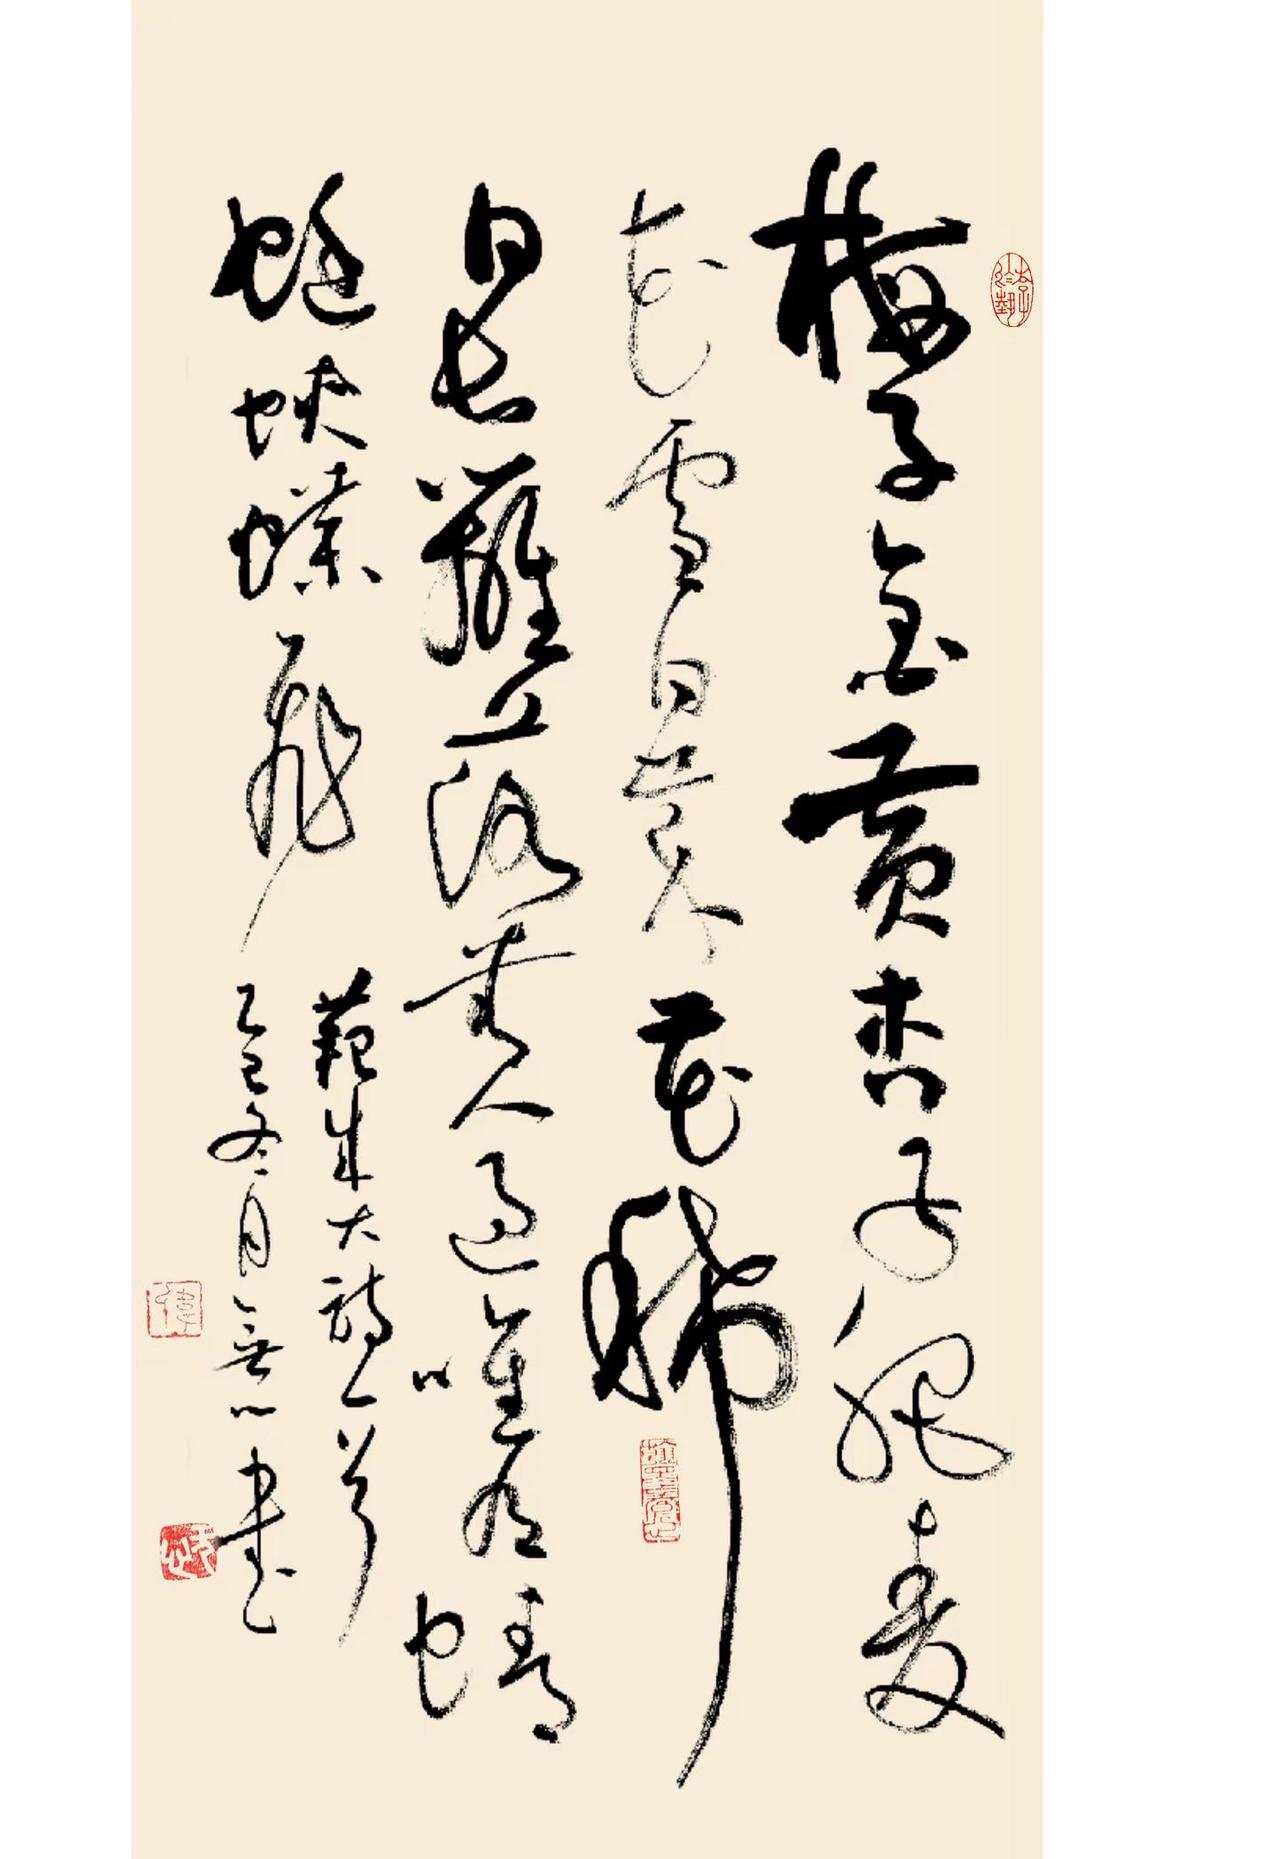 梅子金黄杏子肥麦
花雪白菜花稀
日长篱上落无人过唯有蜻
蜓蛱蝶飞
范成大诗一首
乙巳冬月无心书